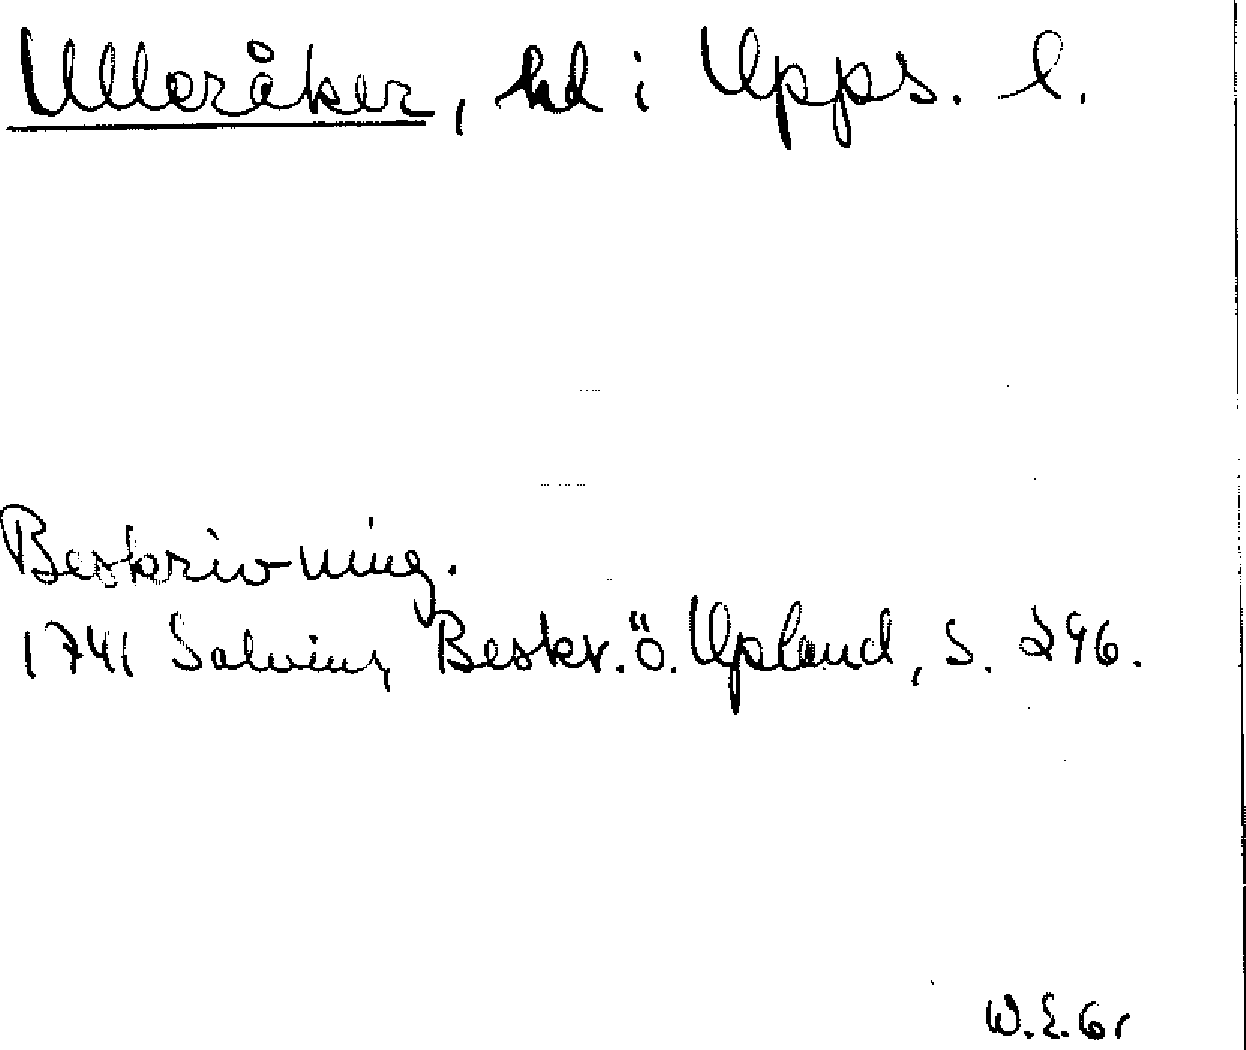 Ulleråker, hd i Upps. l.
Beskrivning.
1741 Salvius, Beskr. ö. Upland, S. 296.
W.E.Gr